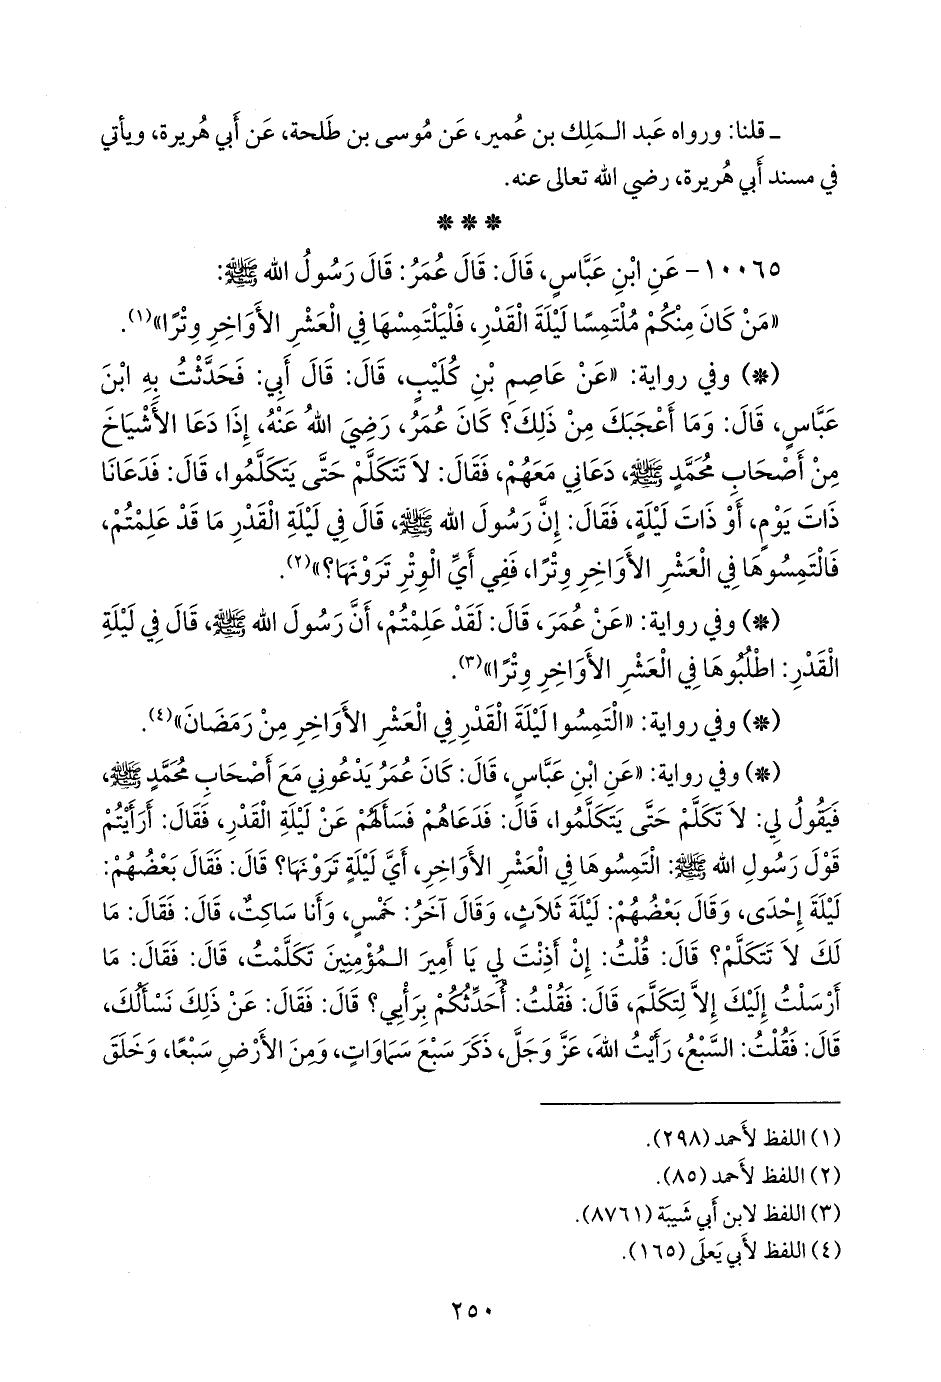 ـ قلنا: ورواه عَبد الـمَلِك بن عُمير، عَن مُوسى بن طَلحة، عَن أَبي هُريرة، ويأتي
في مسند أَبي هُريرة، رضي الله تعالى عنه.
* * *
١٠٠٦٥- عَنِ ابْنِ عَبَّاسٍ، قَالَ: قَالَ عُمَرُ: قَالَ رَسُولُ الله ﷺ:
«مَنْ كَانَ مِنْكُمْ مُلْتَمِسًا لَيْلَةَ الْقَدْرِ، فَلْيَلْتَمِسْهَا فِي الْعَشْرِ الأَوَاخِرِ وِتْرًا»(١).
(*) وفي رواية: «عَنْ عَاصِمِ بْنِ كُلَيْبٍ، قَالَ: قَالَ أَبِي: فَحَدَّثْتُ بِهِ ابْنَ
عَبَّاسٍ، قَالَ: وَمَا أَعْجَبَكَ مِنْ ذَلِكَ؟ كَانَ عُمَرُ، رَضِيَ اللهُ عَنْهُ، إِذَا دَعَا الأَشْيَاخَ
مِنْ أَصْحَابِ مُحَمَّدٍ ﷺ، دَعَانِي مَعَهُمْ، فَقَالَ: لاَ تَتَكَلَّمْ حَتَّى يَتَكَلَّمُوا، قَالَ: فَدَعَانَا
ذَاتَ يَوْمٍ، أَوْ ذَاتَ لَيْلَةٍ، فَقَالَ: إِنَّ رَسُولَ الله ﷺ، قَالَ فِي لَيْلَةِ الْقَدْرِ مَا قَدْ عَلِمْتُمْ،
فَالْتَمِسُوهَا فِي الْعَشْرِ الأَوَاخِرِ وِتْرًا، فَفِي أَيِّ الْوِتْرِ تَرَوْنَهَا؟»(٢).
(*) وفي رواية: «عَنْ عُمَرَ، قَالَ: لَقَدْ عَلِمْتُمْ، أَنَّ رَسُولَ الله ﷺ، قَالَ فِي لَيْلَةِ
الْقَدْرِ: اطْلُبُوهَا فِي الْعَشْرِ الأَوَاخِرِ وِتْرًا»(٣).
(*) وفي رواية: «الْتَمِسُوا لَيْلَةَ الْقَدْرِ فِي الْعَشْرِ الأَوَاخِرِ مِنْ رَمَضَانَ»(٤).
(*) وفي رواية: «عَنِ ابْنِ عَبَّاسٍ، قَالَ: كَانَ عُمَرُ يَدْعُونِي مَعَ أَصْحَابِ مُحَمَّدٍ ﷺ،
فَيَقُولُ لِي: لاَ تَكَلَّمْ حَتَّى يَتَكَلَّمُوا، قَالَ: فَدَعَاهُمْ فَسَأَلَهُمْ عَنْ لَيْلَةِ الْقَدْرِ، فَقَالَ: أَرَأَيْتُمْ
قَوْلَ رَسُولِ الله ﷺ: الْتَمِسُوهَا فِي الْعَشْرِ الأَوَاخِرِ، أَيَّ لَيْلَةٍ تَرَوْنَهَا؟ قَالَ: فَقَالَ بَعْضُهُمْ:
لَيْلَةَ إِحْدَى، وَقَالَ بَعْضُهُمْ: لَيْلَةَ ثَلاَثٍ، وَقَالَ آخَرُ: خَمْسٍ، وَأَنا سَاكِتٌ، قَالَ: فَقَالَ: مَا
لَكَ لاَ تَتَكَلَّمْ؟ قَالَ: قُلْتُ: إِنْ أَذِنْتَ لِي يَا أَمِيرَ الـمُؤْمِنِينَ تَكَلَّمْتُ، قَالَ: فَقَالَ: مَا
أَرْسَلْتُ إِلَيْكَ إِلاَّ لِتَكَلَّمَ، قَالَ: فَقُلْتُ: أُحَدِّثُكُمْ بِرَأْيِي؟ قَالَ: فَقَالَ: عَنْ ذَلِكَ نَسْأَلُكَ،
قَالَ: فَقُلْتُ: السَّبْعُ، رَأَيْتُ اللهَ، عَزَّ وَجَلَّ، ذَكَرَ سَبْعَ سَمَاوَاتٍ، وَمِنَ الأَرْضِ سَبْعًا، وَخَلَقَ
(١) اللفظ لأَحمد (٢٩٨).
(٢) اللفظ لأَحمد (٨٥).
(٣) اللفظ لابن أَبي شَيبَة (٨٧٦١).
(٤) اللفظ لأَبي يَعلَى (١٦٥).
٢٥٠